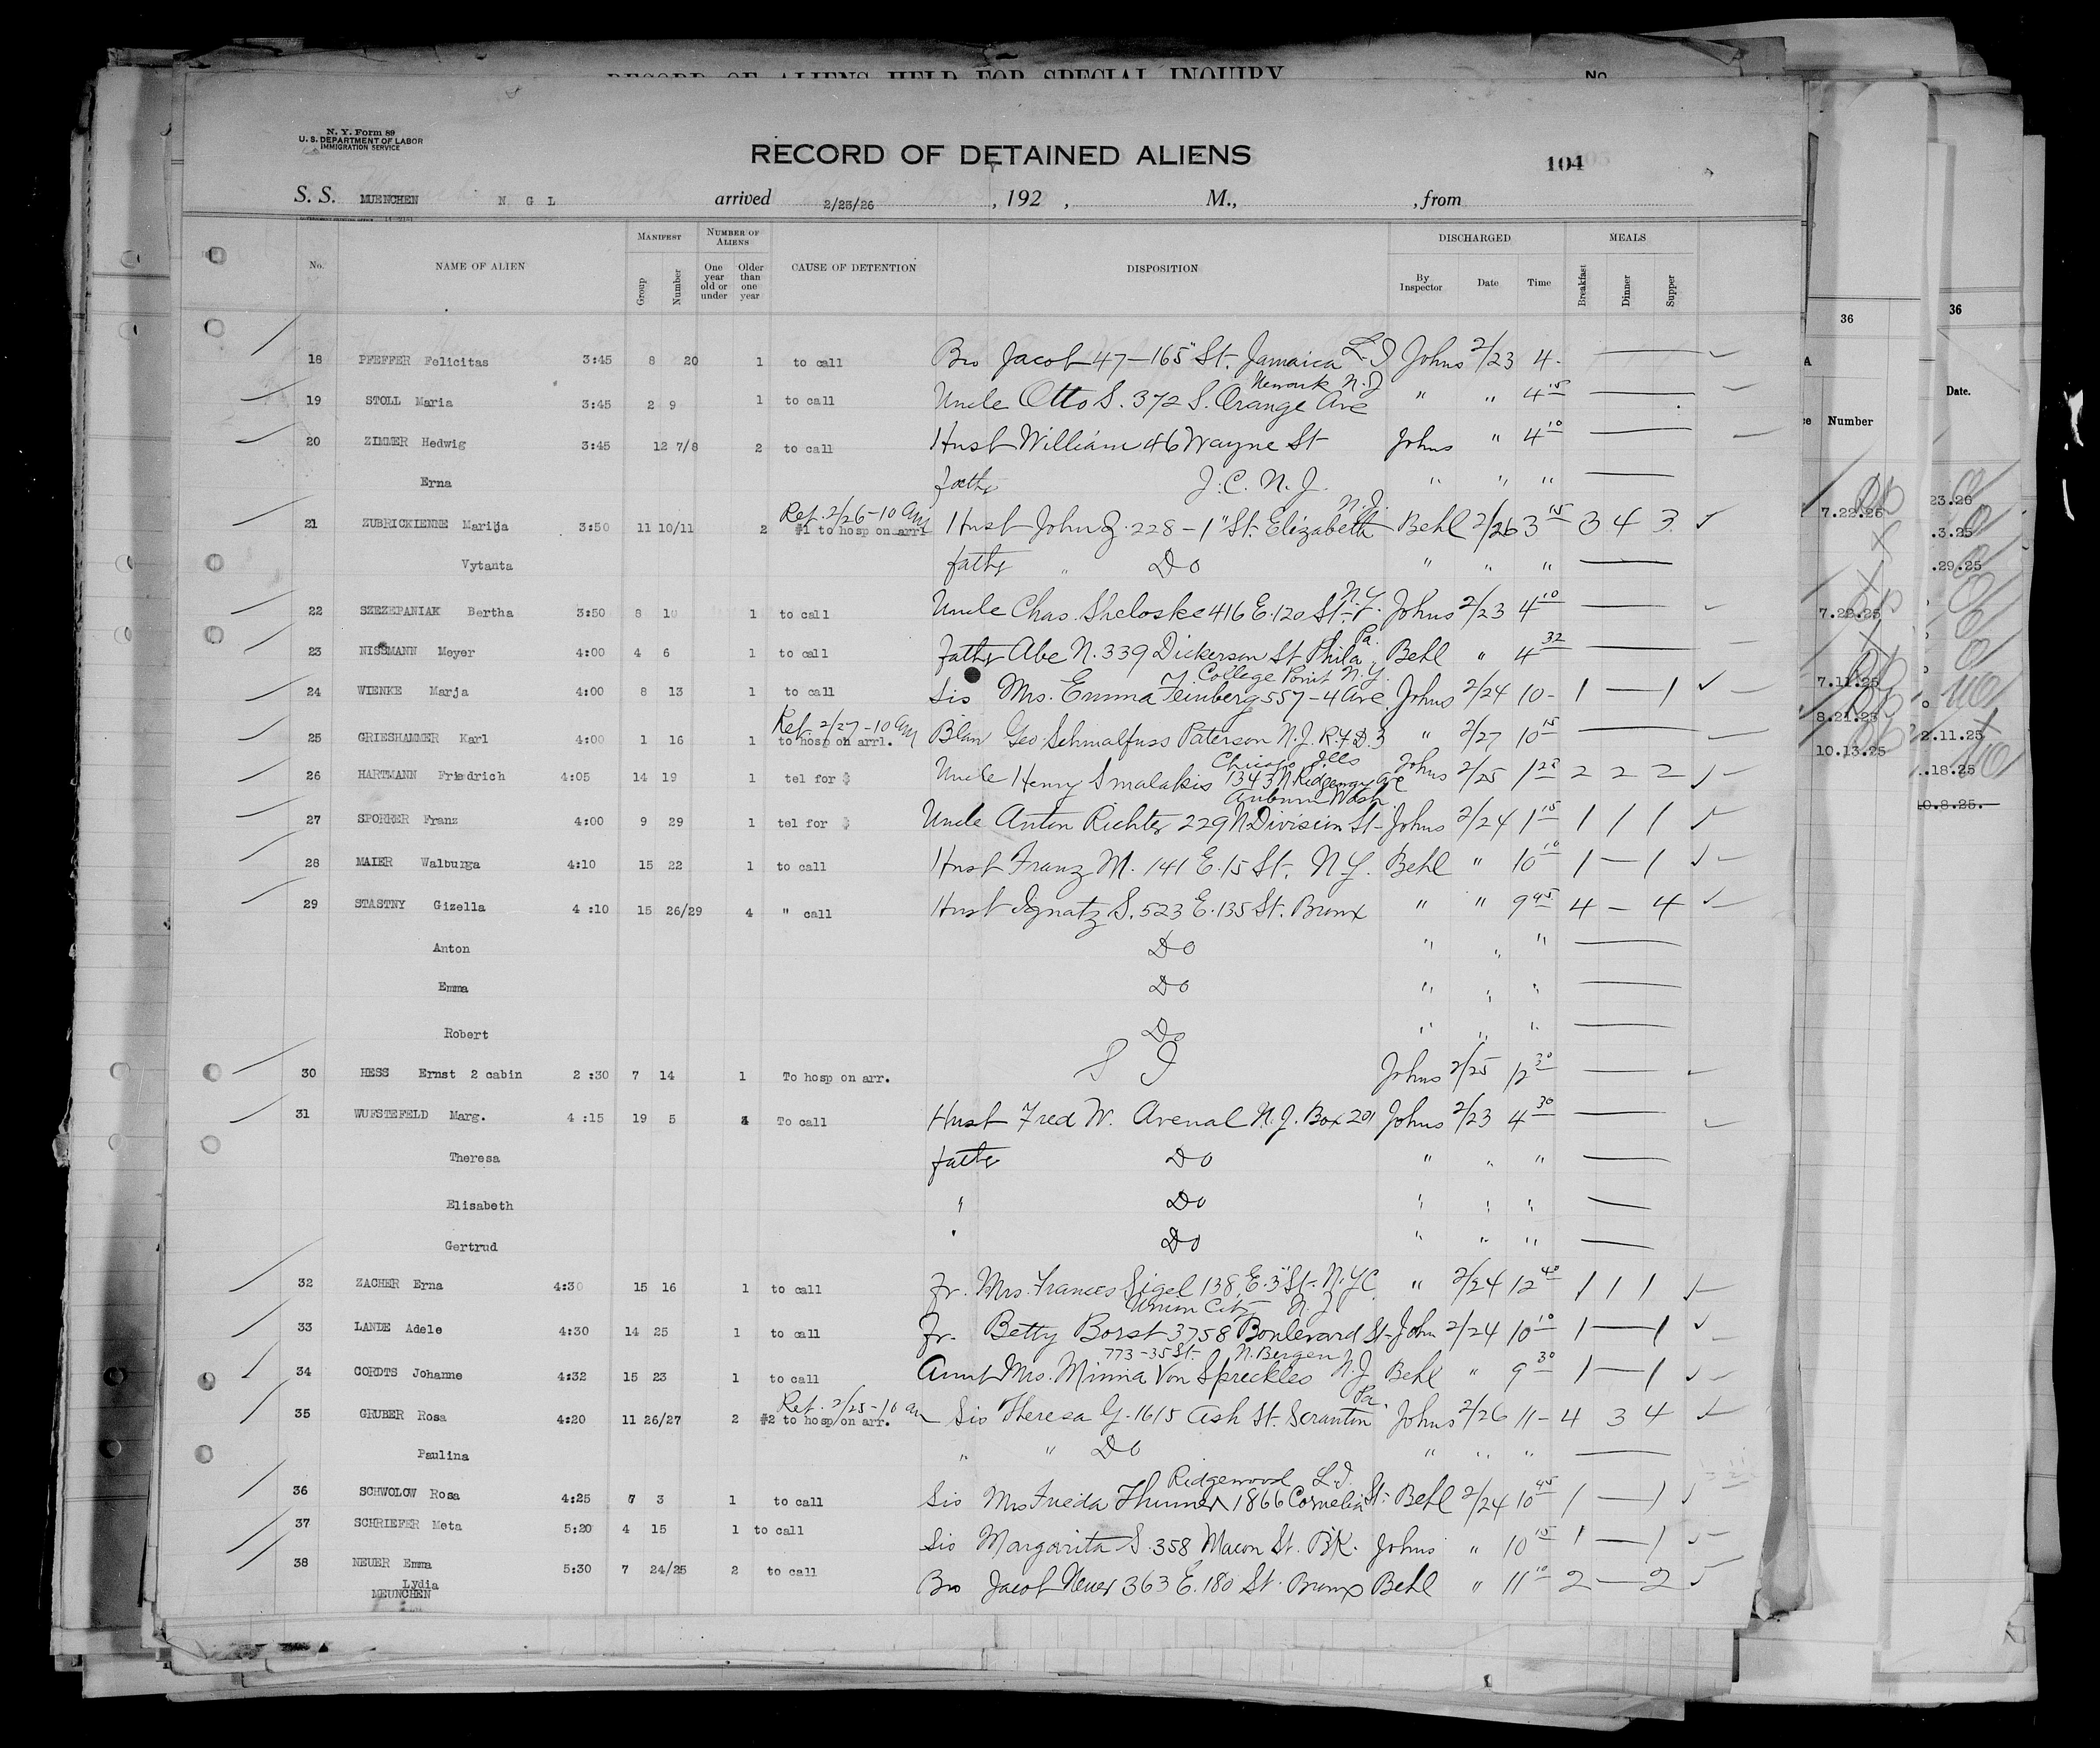 RECORD OF ALIENS HELD FOR SPECIAL INQUIRY No.
N. Y. Form 89
U. S. DEPARTMENT OF LABOR
IMMIGRATION SERVICE
RECORD OF DETAINED ALIENS 104
S. S. MUENCHEN N G L arrived 2/23/26, 192 , M., , from
No. NAME OF ALIEN MANIFEST Group Number NUMBER OF ALIENS One year old or under Older than one year CAUSE OF DETENTION DISPOSITION DISCHARGED By Inspector Date Time MEALS Breakfast Dinner Supper
18 PFEFFER Felicitas 3:45 8 20 1 to call Bro Jacob 47-165" St. Jamaica L.I Johns 2/23 4-
Newark N.J
19 STOLL Maria 3:45 2 9 1 to call Uncle Otto S. 372 S. Orange Ave " " 4 15
20 ZIMMER Hedwig 3:45 12 7/8 2 to call Husb William 46 Wayne St Johns " 4 10
Erna father J.C. N.J. " " "
Ret. 2/26-10 AM N.J.
21 ZUBRICKIENNE Marija 3:50 11 10/11 2 #1 to hosp on arrl Husb John Z. 228-1" St. Elizabeth Behl 2/26 3 15 3 4 3
Vytanta father " Do " " "
22 SZEZEPANIAK Bertha 3:50 8 10 1 to call Uncle Chas. Sheloske 416 E. 120 St. N.Y. Johns 2/23 4 10
23 NISSMANN Meyer 4:00 4 6 1 to call Father Abe N. 339 Dickerson St Phila. Pa. Behl " 4 32
College Point N.Y.
24 WIENKE Marja 4:00 8 13 1 to call Sis Mrs. Emma Feinberg 557-4 Ave. Johns 2/24 10- 1 — 1
Ret. 2/27-10 AM
25 GRIESHAMMER Karl 4:00 1 16 1 to hosp on arrl. Geo. Schmalfuss Paterson N.J. R.F.D. 3 " 2/27 10 15
Chicago Ills
26 HARTMANN Friedrich 4:05 14 19 1 tel for $ Uncle Henry Smalakis 1343 N Ridgeway Ave Johns 2/25 1 20 2 2 2
Auburn Wash.
27 SPORRER Franz 4:00 9 29 1 tel for $ Uncle Anton Richter 229 N Division St- Johns 2/24 1 15 1 1 1
28 MAIER Walburga 4:10 15 22 1 to call Husb Franz M. 141 E. 15 St. N.Y. Behl " 10 10 1 — 1
29 STASTNY Gizella 4:10 15 26/29 4 " call Husb Ignatz S. 523 E. 135 St. Bronx " " 9 45 4 — 4
Anton Do " " "
Emma Do " " "
Robert Do " " "
30 HESS Ernst 2 cabin 2:30 7 14 1 To hosp on arr. S I Johns 2/25 12 30
31 WUFSTEFELD Marg. 4:15 19 5 4 To call Husb Fred W. Avenal N.J. Box 201 Johns 2/23 4 30
Theresa father Do " " "
Elisabeth " Do " " "
Gertrud " Do " " "
32 ZACHER Erna 4:30 15 16 1 to call Fr. Mrs. Frances Sigel 138 E. 3" St. N.Y.C. " 2/24 12 40 1 1 1
Union City N.J.
33 LANDE Adele 4:30 14 25 1 to call Fr. Betty Borst 3758 Boulevard St- John 2/24 10 10 1 — 1
773-35 St. N. Bergen
34 CORDTS Johanne 4:32 15 23 1 to call Aunt Mrs. Minna Von Spreckles N.J. Behl " 9 30 1 — 1
Ret. 2/25-10 am Pa.
35 GRUBER Rosa 4:20 11 26/27 2 #2 to hosp on arr. Sis Theresa G. 1615 Ash St. Scranton Johns 2/26 11- 4 3 4
Paulina " " Do " " "
Ridgewood L.I.
36 SCHWOLOW Rosa 4:25 7 3 1 to call Sis Mrs Frieda Thumen 1866 Cornelia St. Behl 2/24 10 45 1 — 1
37 SCHRIEFER Meta 5:20 4 15 1 to call Sis Margarita S. 358 Macon St. BK. Johns " 10 15 1 — 1
38 NEUER Emma 5:30 7 24/25 2 to call Bro Jacob Neuer 363 E. 180 St. Bronx Behl " 11 10 2 — 2
Lydia
MEUNCHEN
36
Number
7.22.26
7.22.25
7.11.25
8.21.25
10.13.25
36
Date.
23.26
.3.25
.29.25
2.11.25
.18.25
10.8.25.